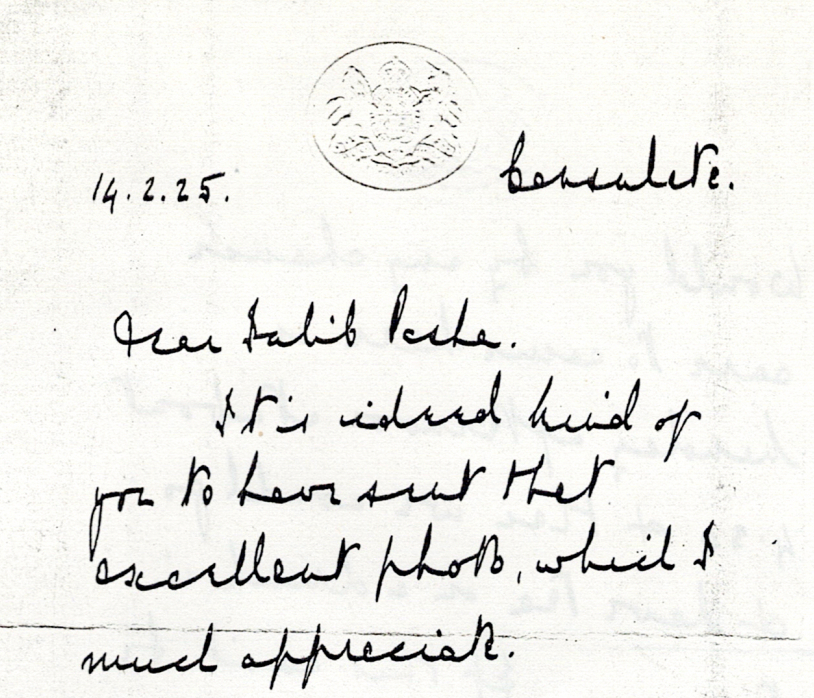 14.2.25.
Consulate.
Dear Talib Pasha.
It is indeed kind of
you to have sent that
excellent photo, which I
much appreciate.